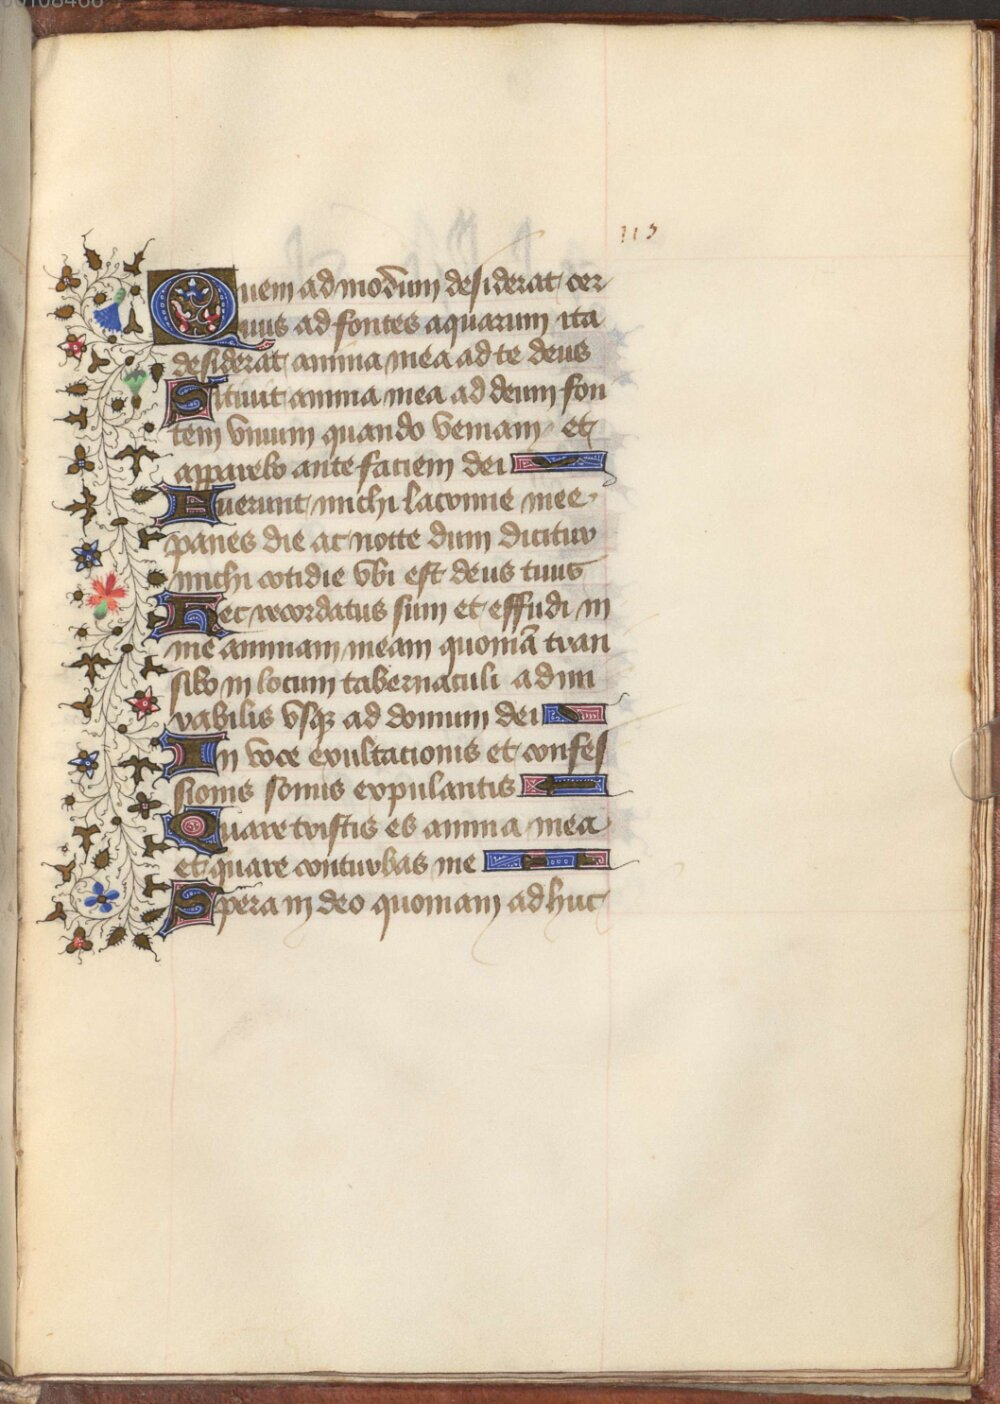 113
Quem ad modũm desiderat cer
uus ad fontes aquarum ita
desiderat anima mea ad te deus
Sitiuit anima mea ad deum fon
tem viuum quando veniam et
apparebo ante faciem dei
Fuerunt michi lacrime mee
panes die ac nocte dum dicitur
michi cotidie vbi est deus tuus
Hec recordatus sum et effudi in
me animam meam quoniã tran
sibo in locum tabernaculi admi
rabilis vsqꝫ ad domum dei
In voce exultacionis et confes
sionis sonus expulantis
Quare tristis es anima mea
et quare conturbas me
Spera in deo quoniam adhuc